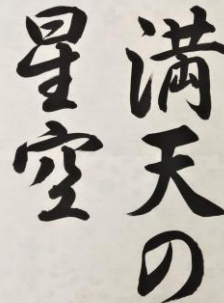 満天の
星空